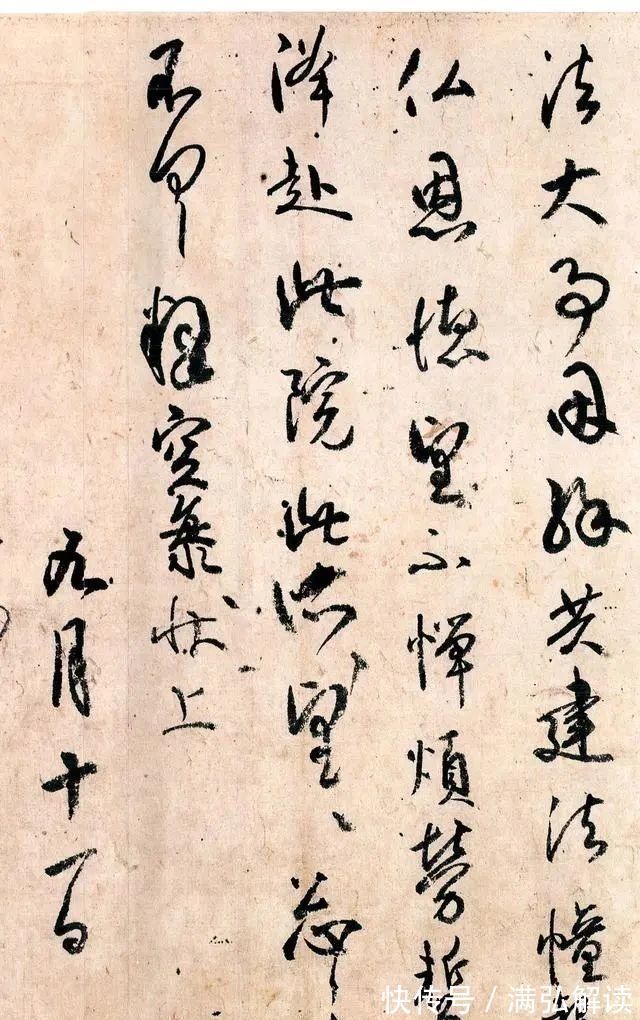 法大事因縁共建法幢
仏恩徳望不憚煩労
降赴此院此所望々忩々
不具釈空海状上
九月十一日
快传号/满弘解读